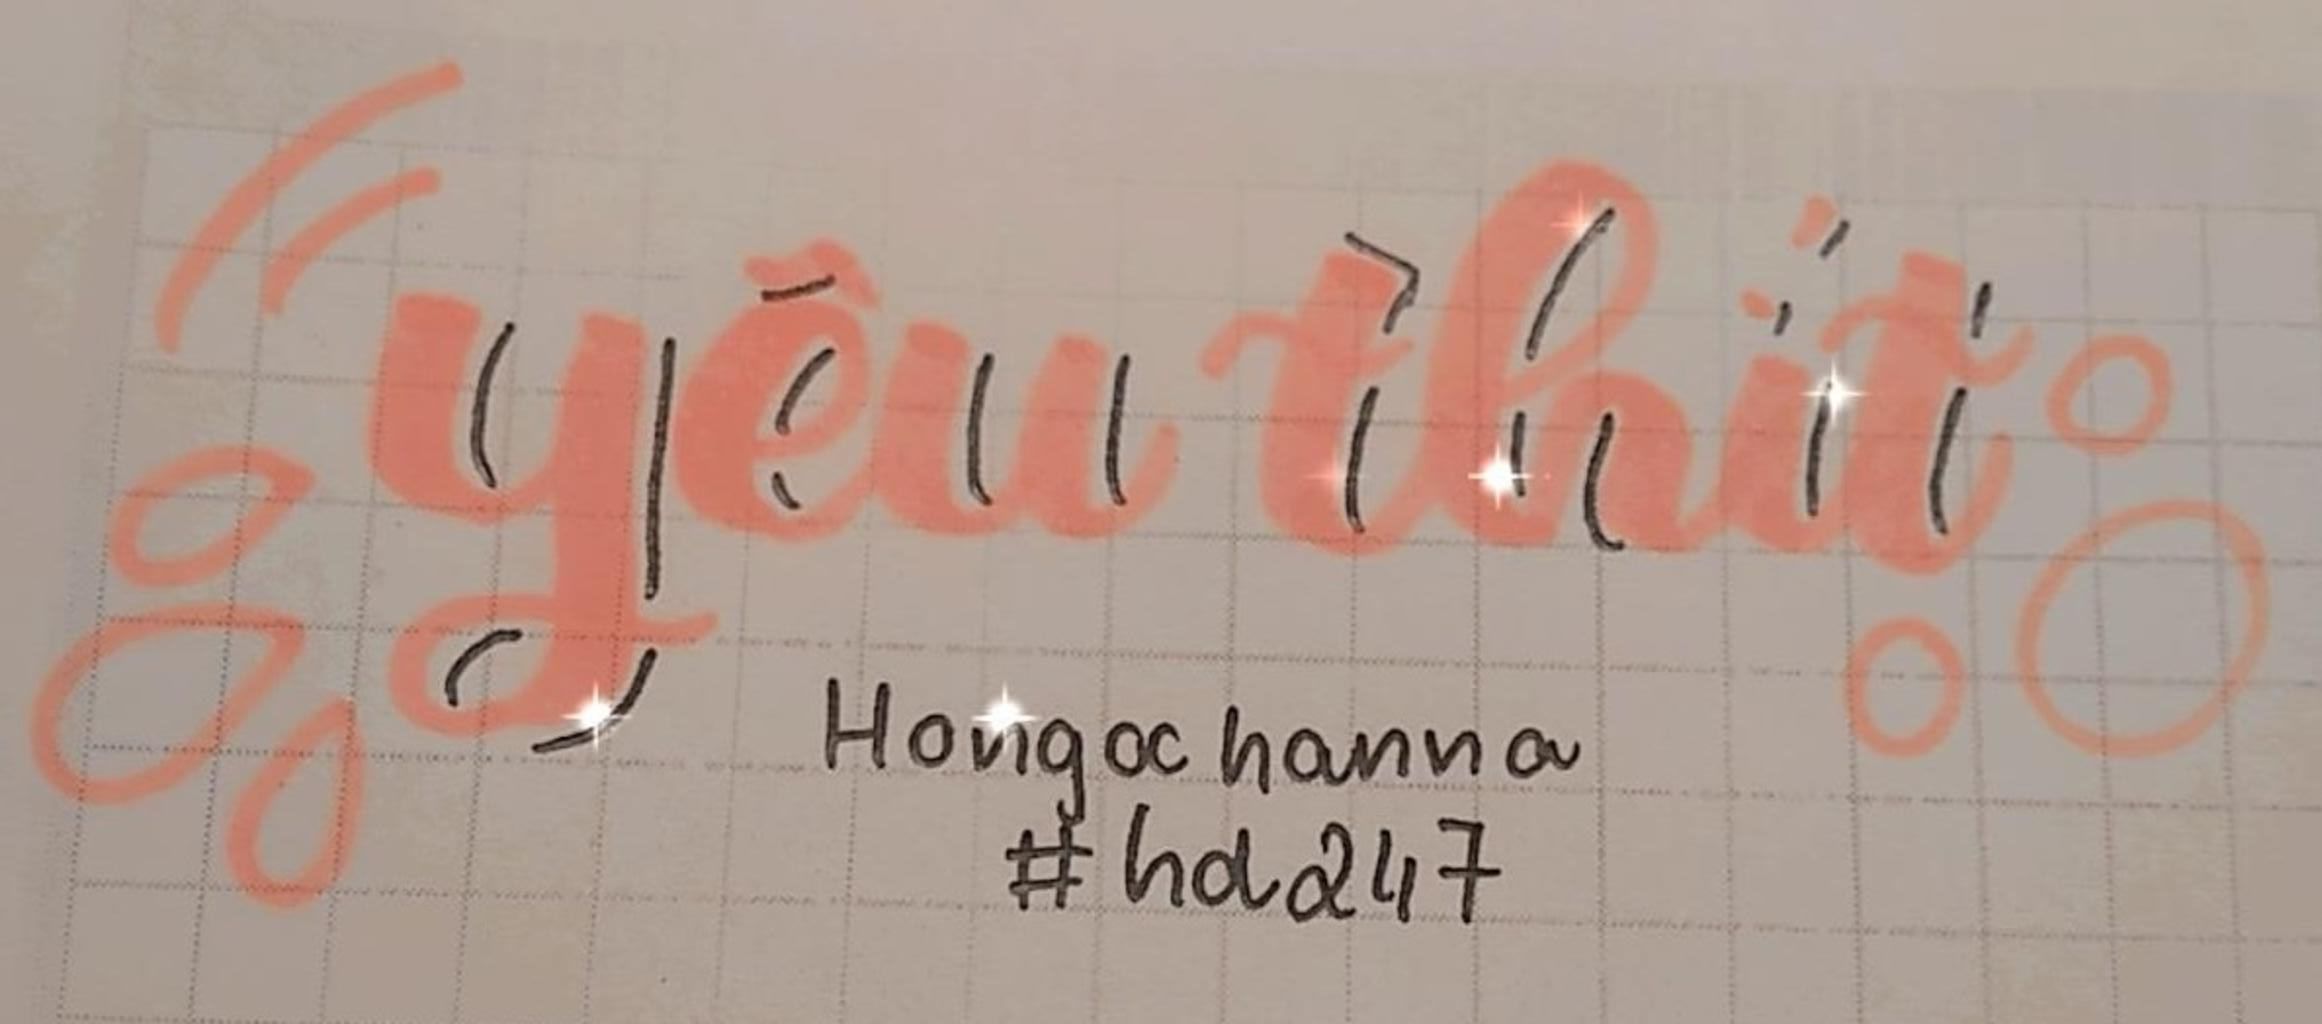 yêu thít
Hongochanna
#hd247